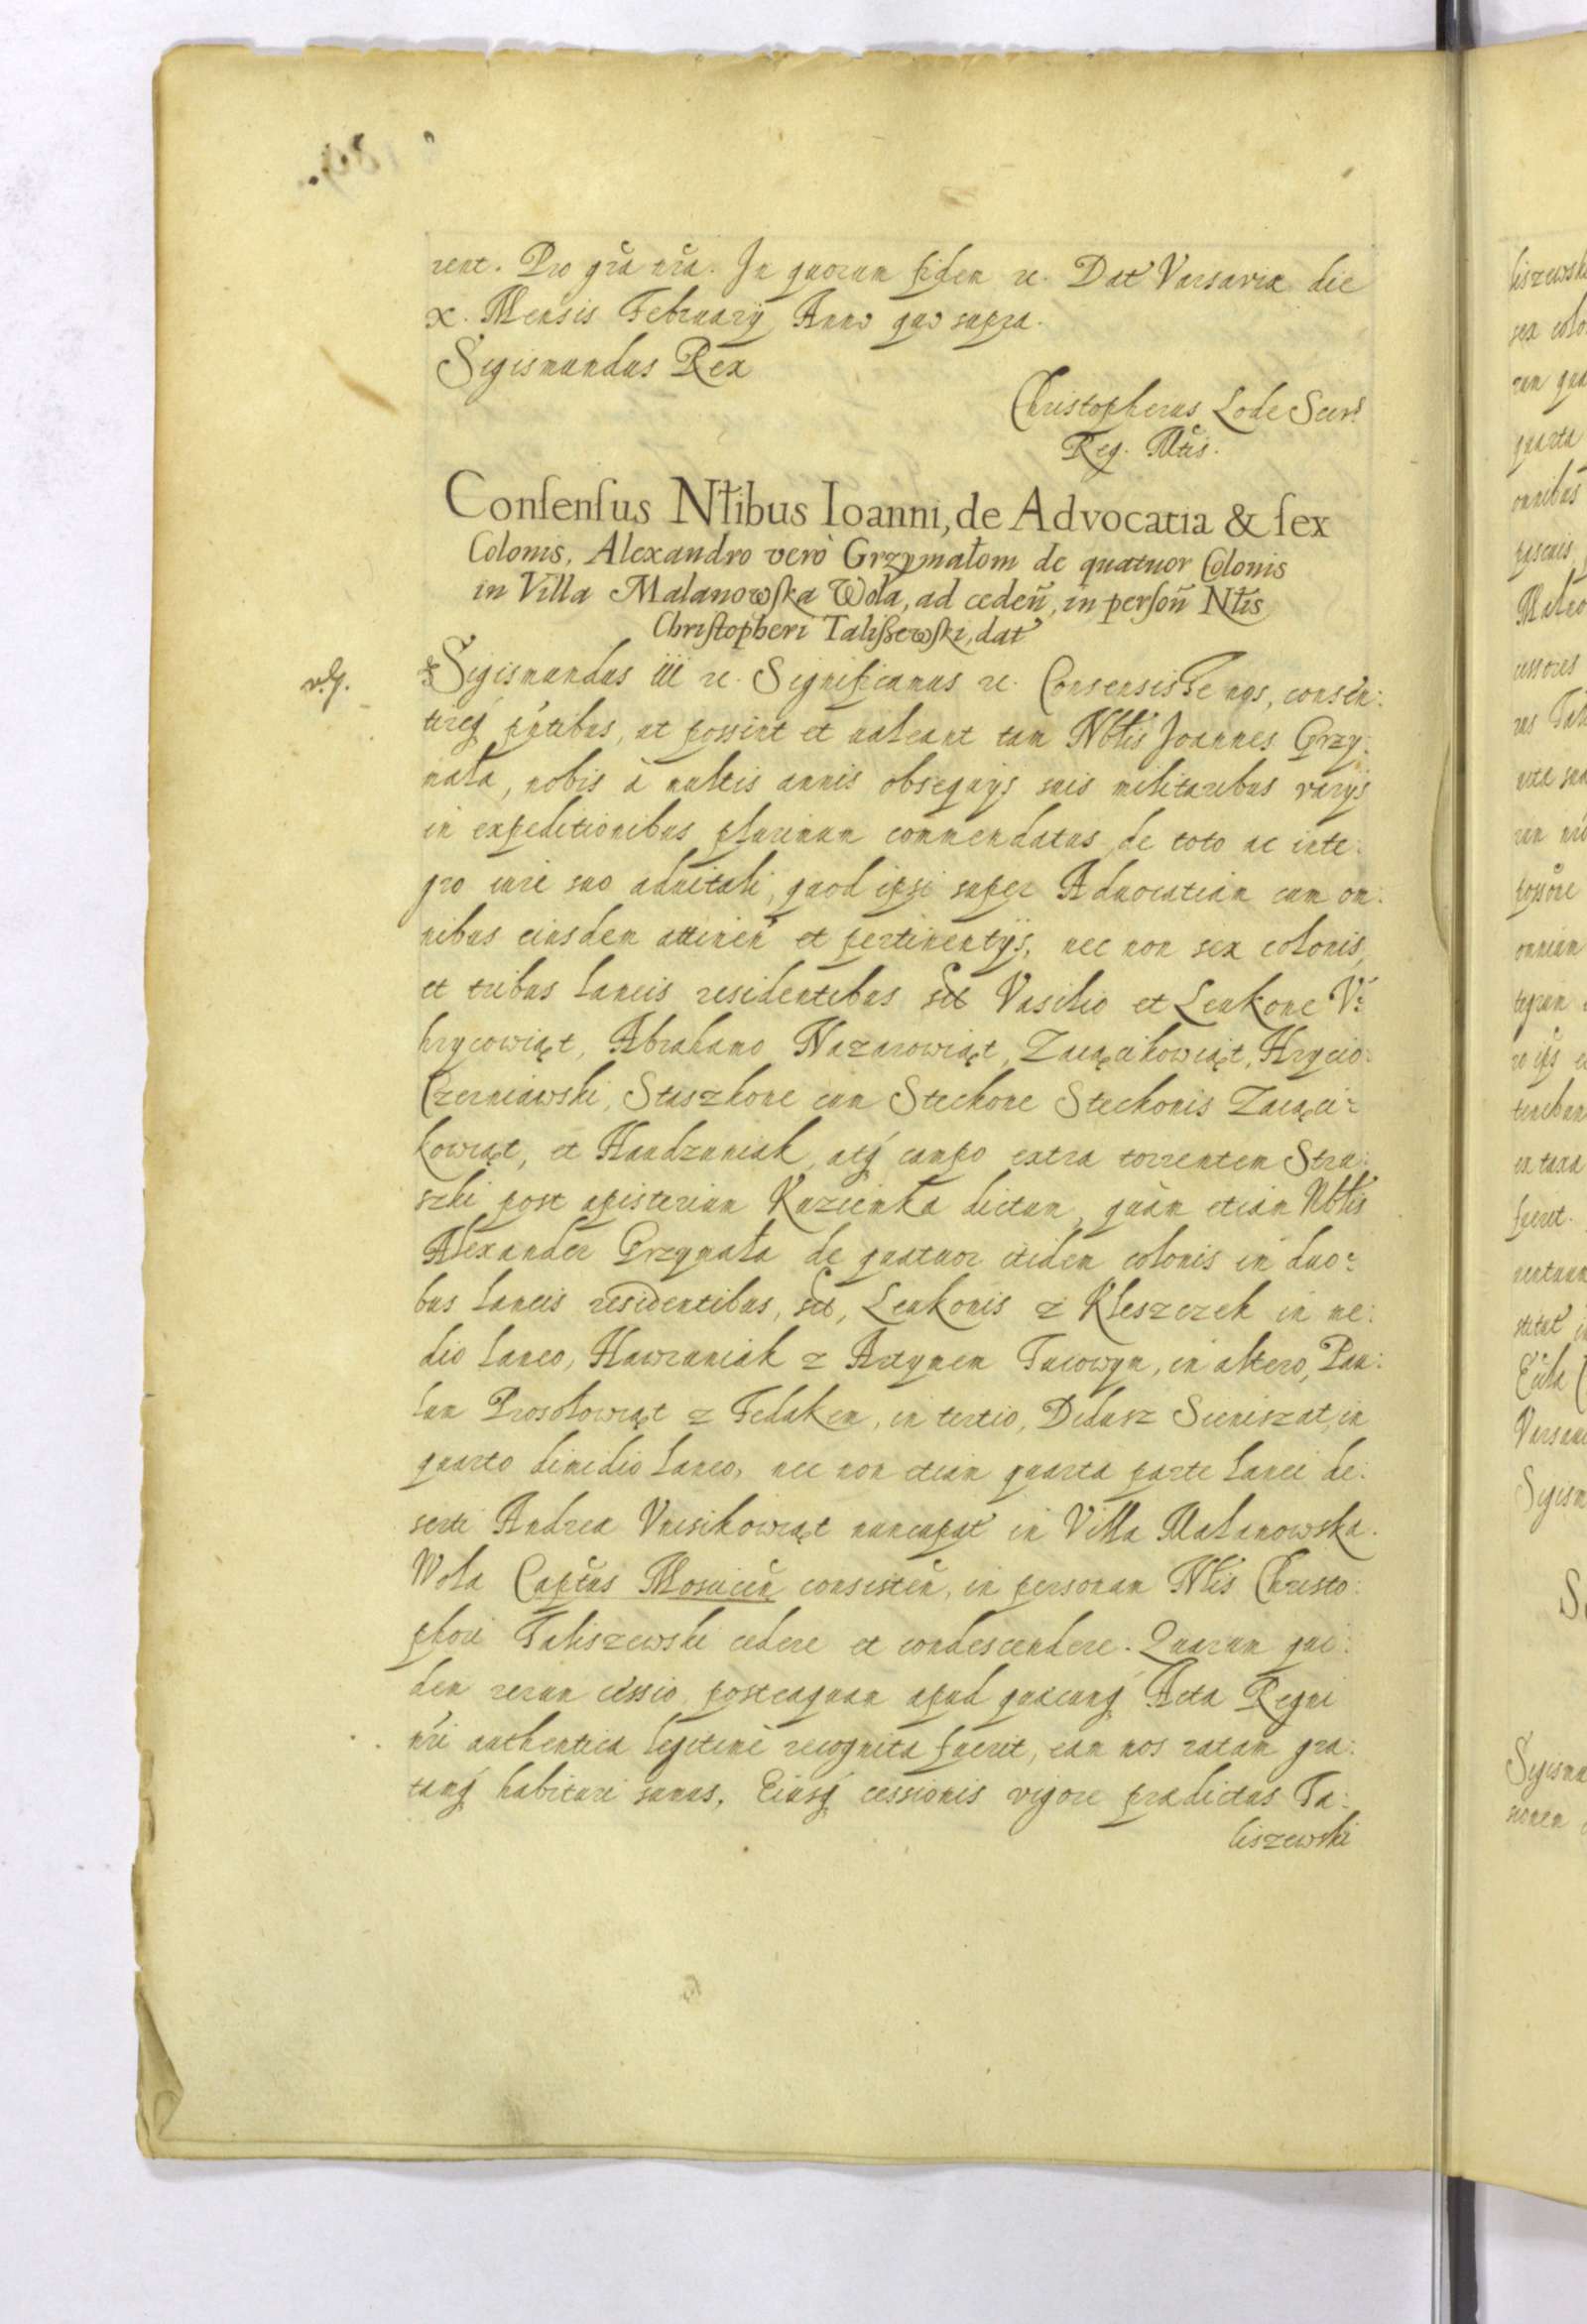 rent. Pro grã nrã. In quorum fidem &c. Dat Varsaviæ die
x. Mensis Februarij Anno quo supra.
Sigismundus Rex
Christopherus Lode Secrs
Reg. Mtis.
Consensus Ntibus Ioanni, de Advocatia & sex
Colonis, Alexandro verò Grzymałom de quatuor Colonis
in Villa Malanowska Wola, ad ceden̄, in person̄ Ntis
Christopheri Talißewski, dat
Sigismundus iii &c. Significamus &c. Consensisse nos, consen:
tireq́ pñtibus, ut possint et valeant tam Nbtis Joannes Grzy:
mała, nobis à multis annis obsequijs suis militaribus varijs
in expeditionibus plurimum commendatus, de toto ac inte:
gro iure suo aduitali, quod ipsi super Aduocatiam cum om:
nibus eiusdem attinen̄ et pertinentijs, nec non sex colonis,
et tribus laneis residentibus sct Vasilio et Leukone V:
hrycowiąt, Abrahamo Nazarowiąt, Zacącikowiąt, Hrycio
Czerniawski, Staszkone cum Steckone Steckonis Zacąci:
kowiąt, et Haudzuniak, atq́ campo extra torrentem Stru:
szki post apisterium Kuzcieńka dictum, quàm etiam Nbtis
Alexander Grzymała de quatuor itidem colonis in duo:
bus laneis residentibus, sct, Leukonis z Kleszczek in me:
dio laneo, Hawruniak z Artymem Tucowym, in altero, Pau:
lum Prosołowiąt z Fedakem, in tertio, Didusz Sieniszat, in
quarto dimidio laneo, nec non etiam quarta parte lanei de:
serti Andrea Vnisikowiąt nuncupat in Villa Malanowska
Wola Captũs Mosticeñ consisteñ, in personam Ntis Christo:
phori Taliszewski cedere et condescendere. Quarum qui:
dem rerum cessio, posteaquam apud quæcunq́ Acta Regni
nrí authentica legitimè recognita fuerit, eam nos ratam gra:
tamq́ habituri sumus, Eiusq́ cessionis vigore prædictus Ta:
liszewski